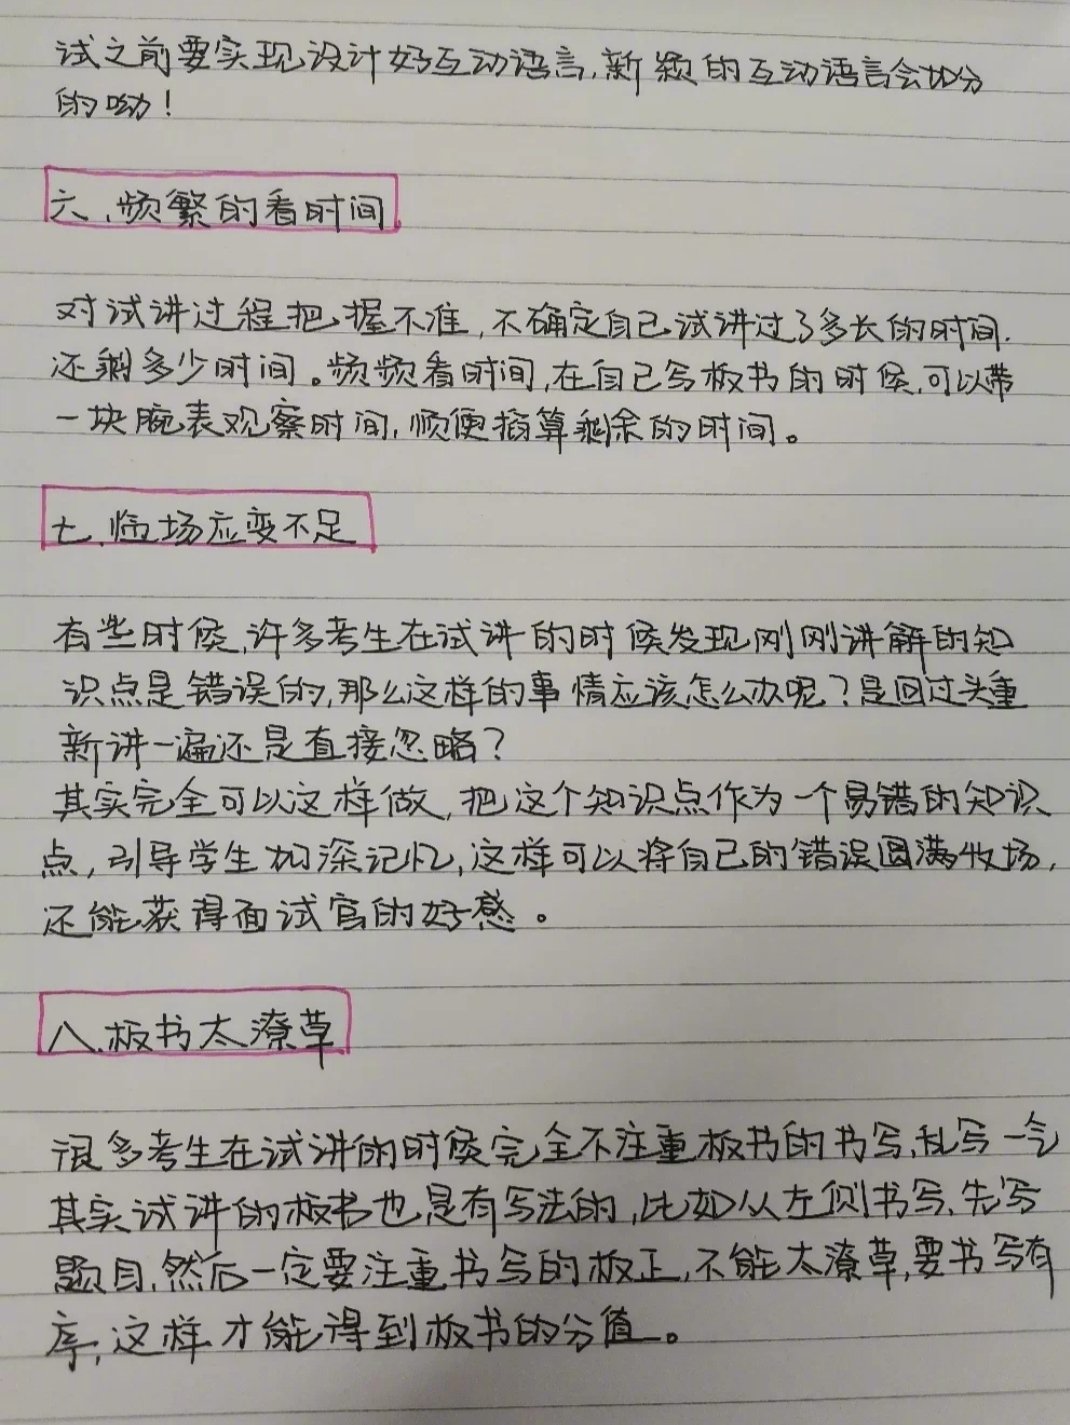 试之前要实现设计好互动语言,新颖的互动语言会加分
的呦!
六、频繁的看时间
对试讲过程把握不准,不确定自己试讲过了多长的时间.
还剩多少时间。频频看时间,在自己写板书的时候,可以带
一块腕表观察时间,顺便掐算剩余的时间。
七.临场应变不足
有些时候,许多考生在试讲的时候发现刚刚讲解的知
识点是错误的,那么这样的事情应该怎么办呢?是回过头重
新讲一遍还是直接忽略?
其实完全可以这样做,把这个知识点作为一个易错的知识
点,引导学生加深记忆,这样可以将自己的错误圆满收场,
还能获得面试官的好感。
八.板书太潦草
很多考生在试讲的时候完全不注重板书的书写,乱写一气
其实试讲的板书也是有写法的,比如从左侧书写、先写
题目,然后一定要注重书写的板正,不能太潦草,要书写有
序,这样才能得到板书的分值。